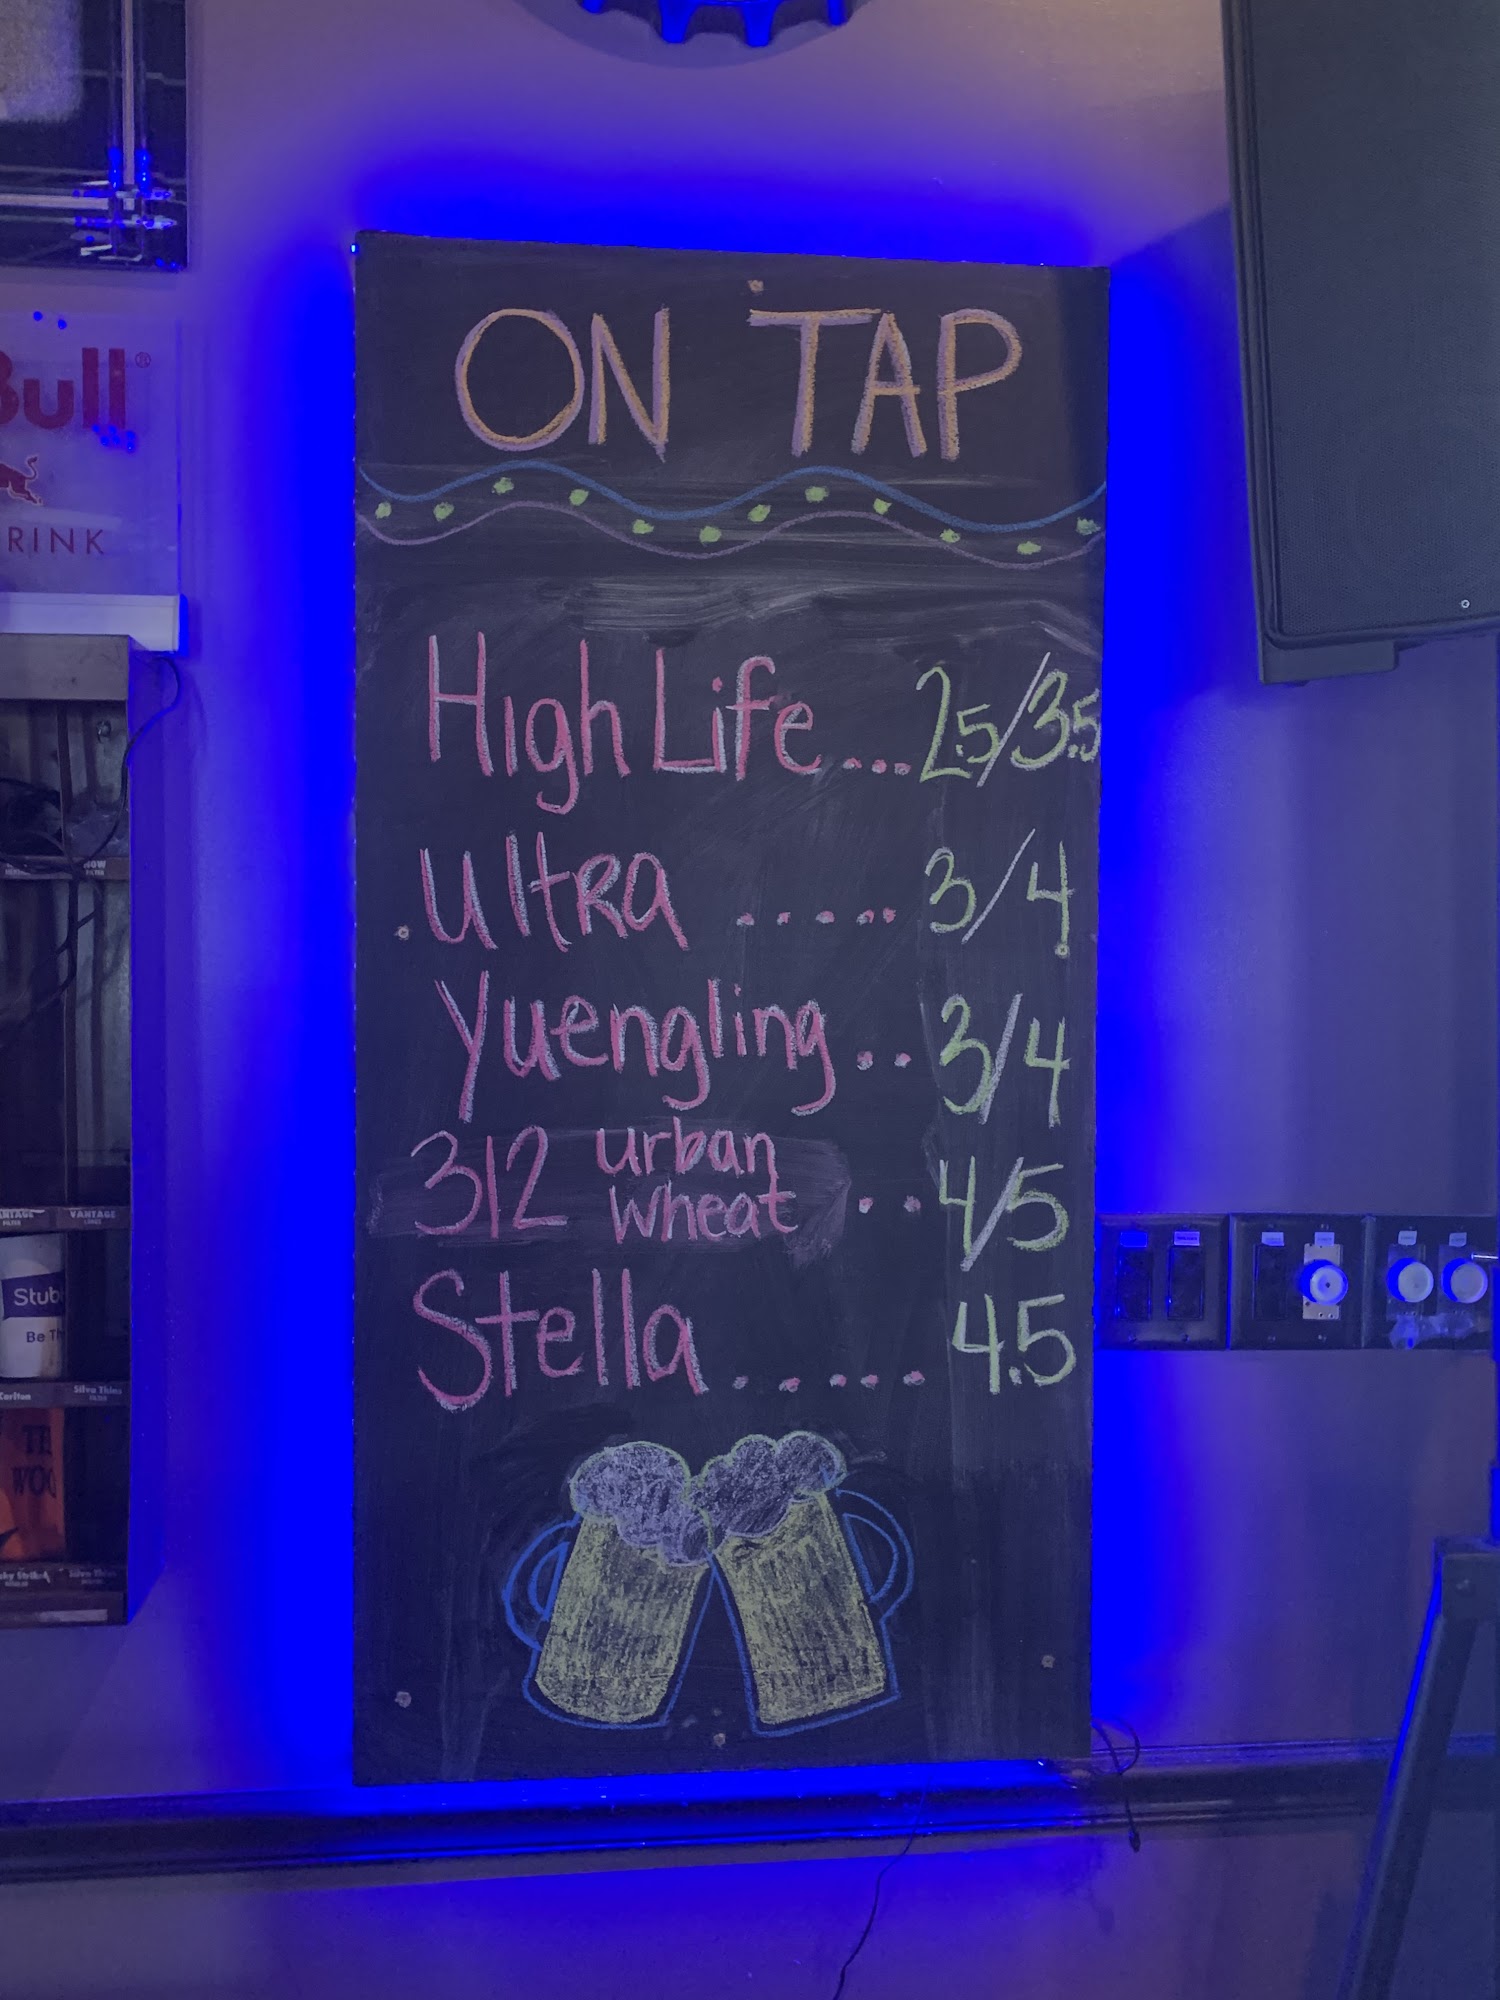 ON TAP
High Life...2.5/3.5
Ultra ..... 3/4
Yuengling .. 3/4
312 urban wheat .. 4/5
Stella ..... 4.5
Bull®
RINK
VANTAGE
Stub
Be Th
Carlton
Silva Thins
TE
WOO